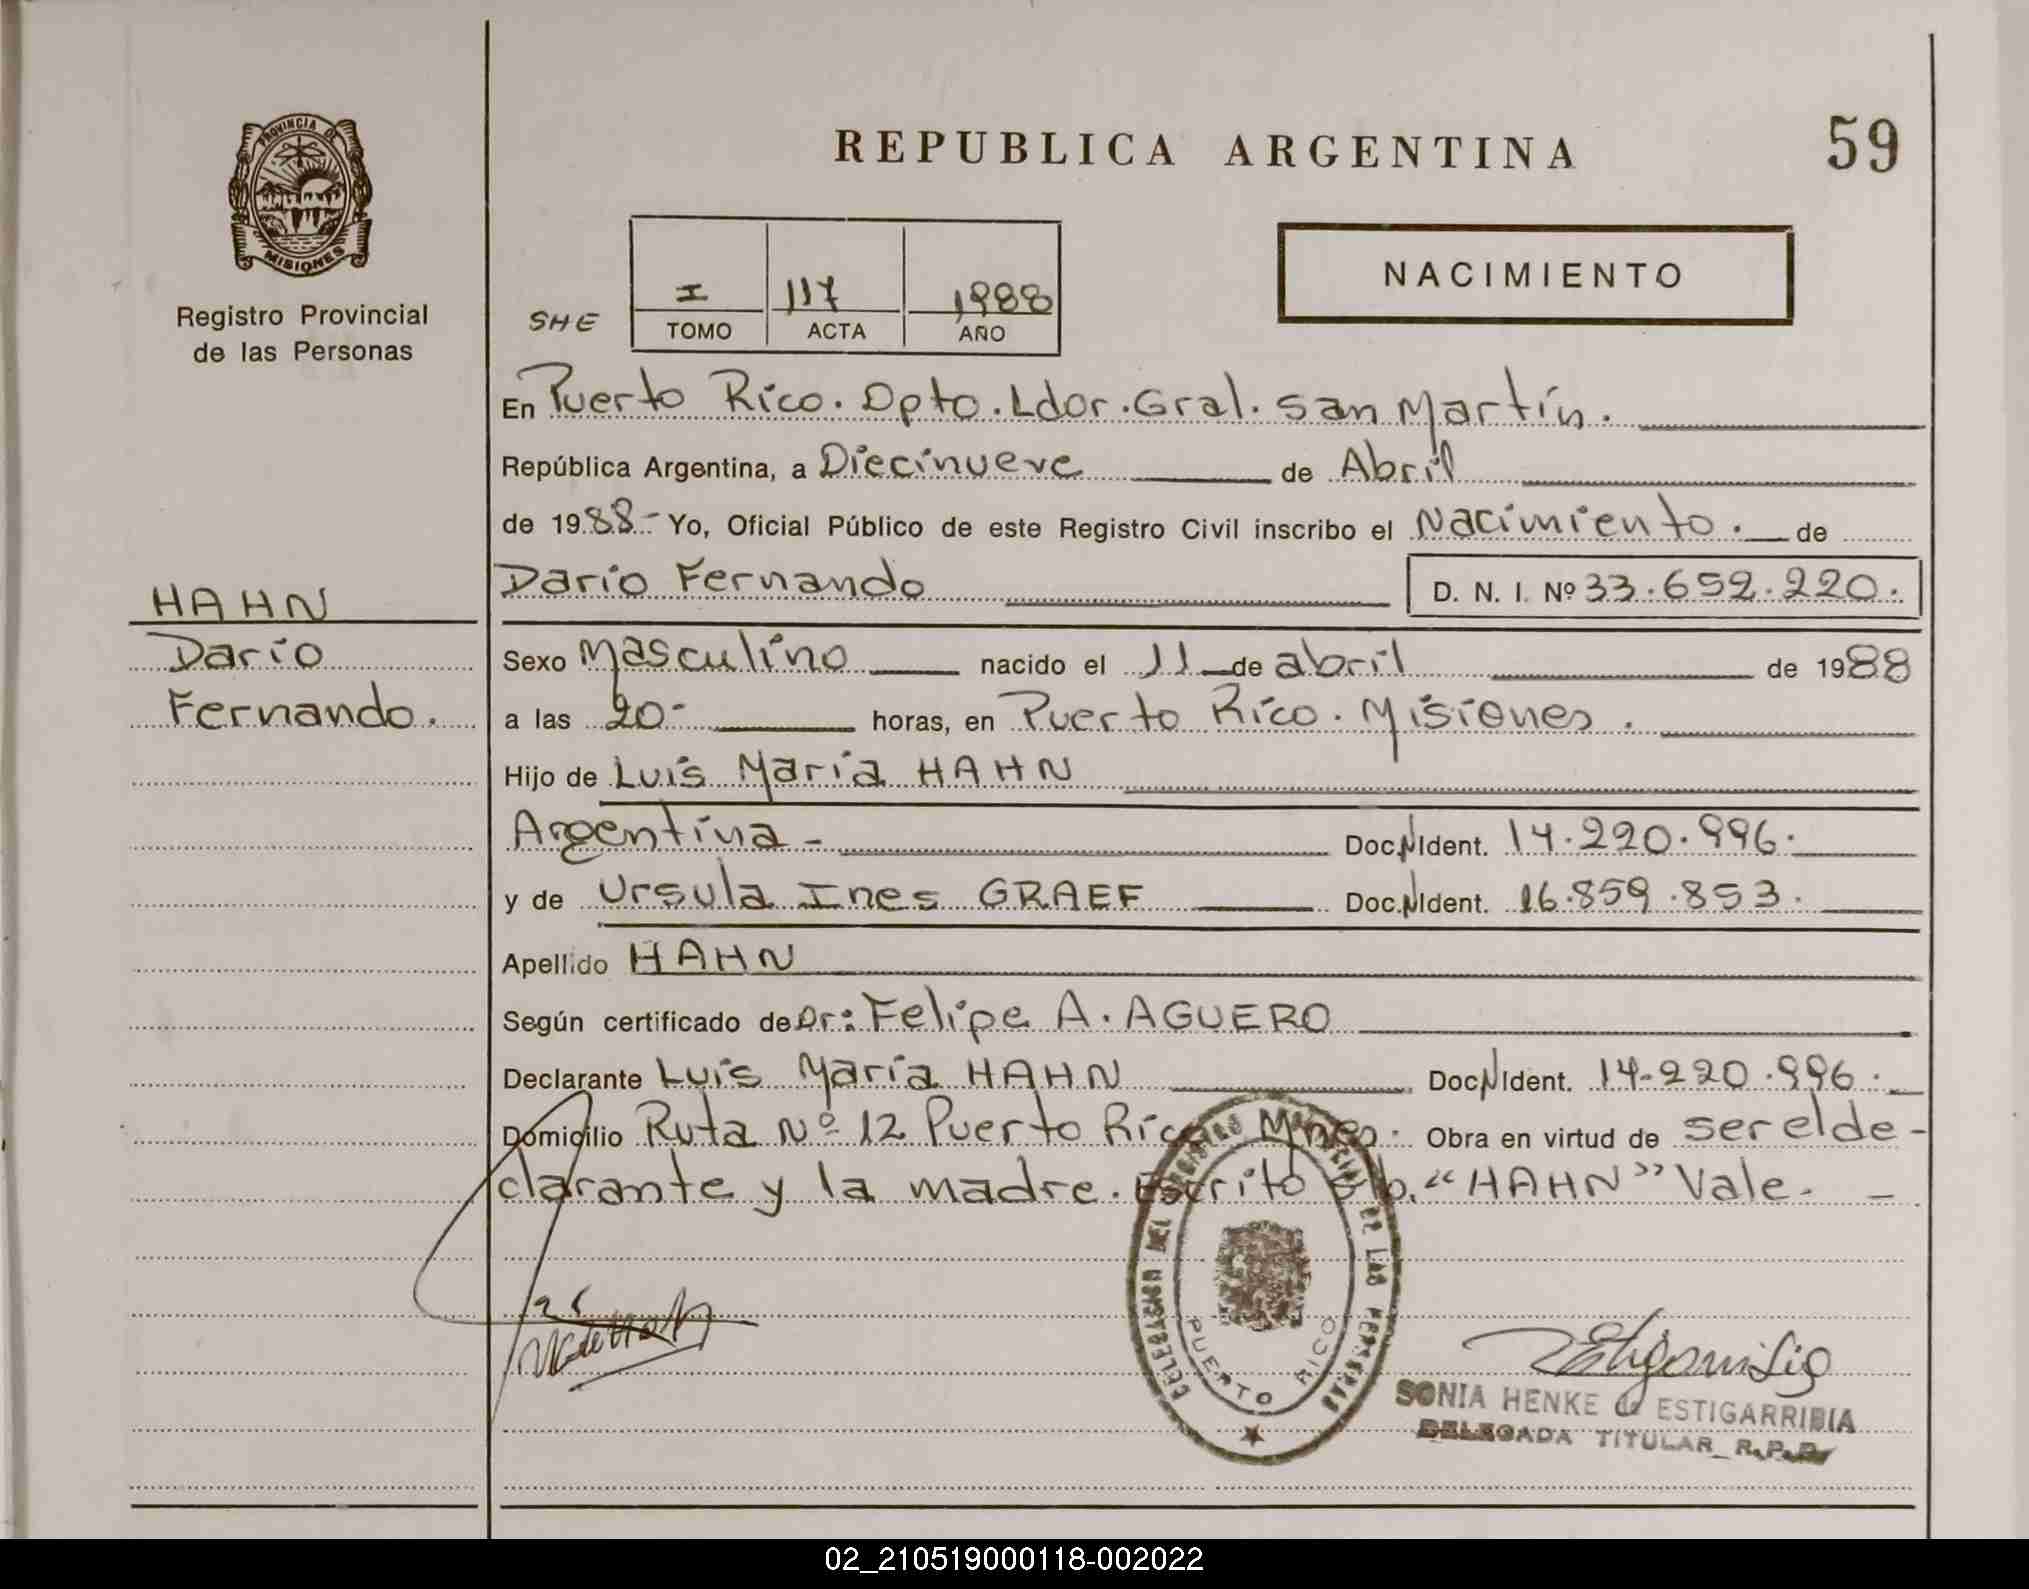 PROVINCIA DE
MISIONES
Registro Provincial
de las Personas
HAHN
Darío
Fernando.
REPUBLICA ARGENTINA
59
SHE
I 117 1988
TOMO ACTA AÑO
NACIMIENTO
En Puerto Rico. Dpto. Ldor. Gral. San Martín.
República Argentina, a Diecinueve de Abril
de 1988.- Yo, Oficial Público de este Registro Civil inscribo el Nacimiento. de
Darío Fernando D. N. I. Nº 33.652.220.
Sexo Masculino nacido el 11 de abril de 1988
a las 20- horas, en Puerto Rico. Misiones.
Hijo de Luis María HAHN
Argentina - Doc. N Ident. 14.220.996.
y de Ursula Ines GRAEF Doc. N Ident. 16.859.853.
Apellido HAHN
Según certificado de Dr: Felipe A. AGUERO
Declarante Luis María HAHN Doc. N Ident. 14-220.996.
Domicilio Ruta Nº 12 Puerto Rico Mnes. Obra en virtud de ser el de-
clarante y la madre. Escrito s/b. "HAHN" Vale. -
DELEGACION DEL REGISTRO PROVINCIAL DE LAS PERSONAS
PUERTO RICO
SONIA HENKE de ESTIGARRIBIA
DELEGADA TITULAR R.P.P.
02_210519000118-002022